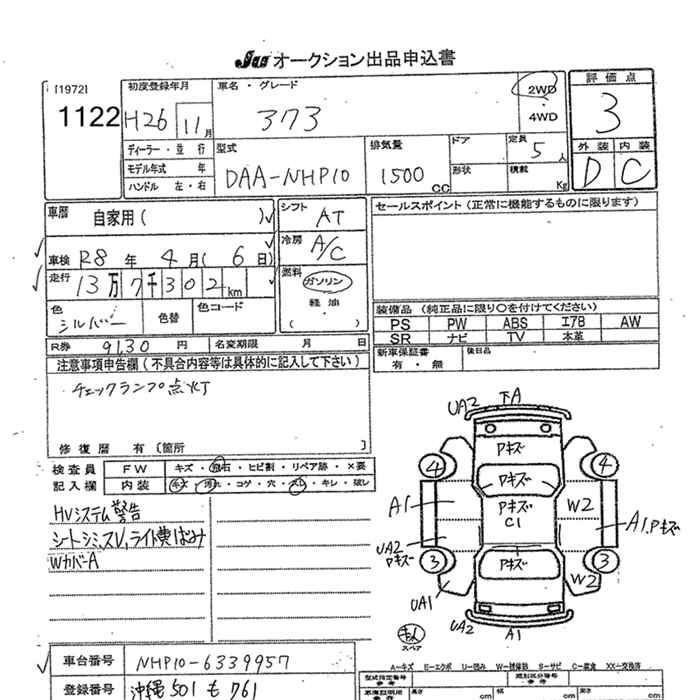 JU オークション出品申込書
[1972]
1122
初度登録年月
H26 11月
車名・グレード
373
2WD
・
4WD
評価点
3
外装 内装
D C
ディーラー・並行
モデル年式 年
ハンドル 左・右
型式
DAA-NHP10
排気量
1500 CC
ドア
形状
定員
5人
積載
Kg
車歴 自家用( )
車検 R8年 4月( 6日)
走行 13万7千302km
色
シルバー
色替
色コード
シフト AT
冷房 A/C
燃料
ガソリン
軽油
( )
セールスポイント(正常に機能するものに限ります)
装備品(純正品に限り○を付けてください)
PS PW ABS エアB AW
SR ナビ TV 本革
新車保証書
有・無
後日品
R券 9130円 名変期限 月 日
注意事項申告欄(不具合内容等は具体的に記入して下さい)
チェックランプ点灯
修復歴 有〔箇所 〕
検査員
記入欄
FW キズ・飛石・ヒビ割・リペア跡・×要
内装 キズ・汚れ・コゲ・穴・スレ・キレ・破レ
HVシステム警告
シートシミ、スレ、ライト黄ばみ
WカバーA
UA2 下A
Pキズ
4 4
Pキズ
A1 Pキズ W2
C1 A1.Pキズ
UA2
Pキズ
3 Pキズ 3
W2
UA1
UA2 A1
スペア
A-キズ E-エクボ U-凹み W-補修跡 S-サビ C-腐食 XX-交換済
車台番号 NHP10-6339957
登録番号 沖縄 501 も 761
型式指定番号
参考
類別区分番号
参考
高さ cm cm cm